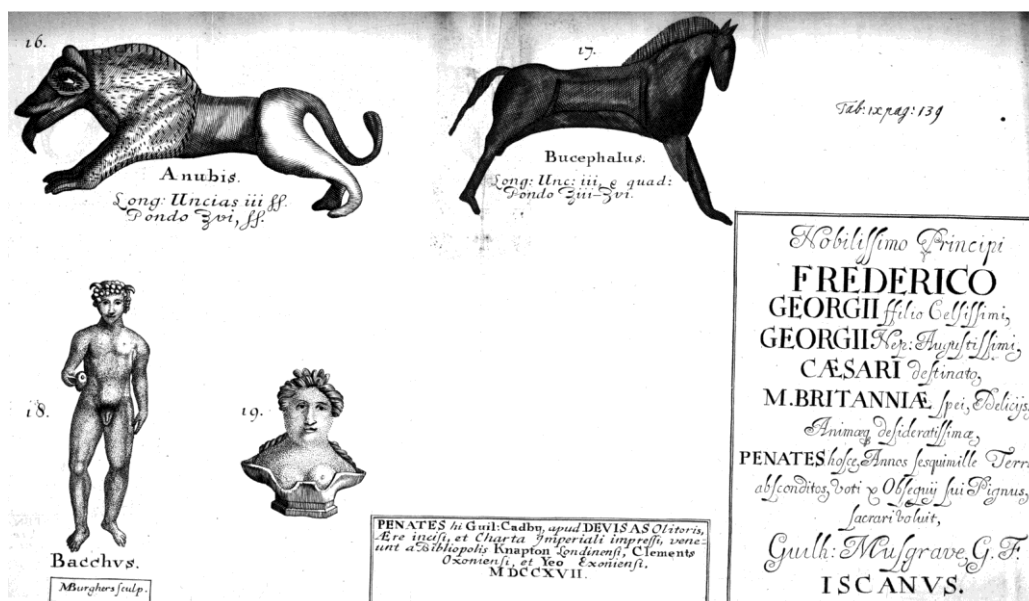 16.
Anubis.
Long: Uncias iii ſſ.
Pondo ℥vi, ſſ.
17.
Bucephalus.
Long: Unc: iii, e quad:
Pondo ℥iii–ʒvi.
Tab: ix pag: 139
18.
Bacchvs.
MBurghers ſculp.
19.
PENATES hi Guil: Cadby, apud DEVISAS Olitoris,
Ære inciſi, et Charta Imperiali impreſſi, vene=
unt a Bibliopolis Knapton Londinenſi, Clements
Oxonienſi, et Yeo Exonienſi,
MDCCXVII.
Nobiliſſimo Principi
FREDERICO
GEORGII ffilio Celſiſſimi,
GEORGII Nep: Auguſtiſſimi,
CÆSARI deſtinato,
M. BRITANNIÆ ſpei, Delicijs,
Animæq, deſideratiſſimæ,
PENATES hoſce, Annos ſesquimille Terra
abſconditos, voti & Obſequij ſui Pignus,
ſacrari voluit,
Guilh: Muſgrave, G. F.
ISCANVS.